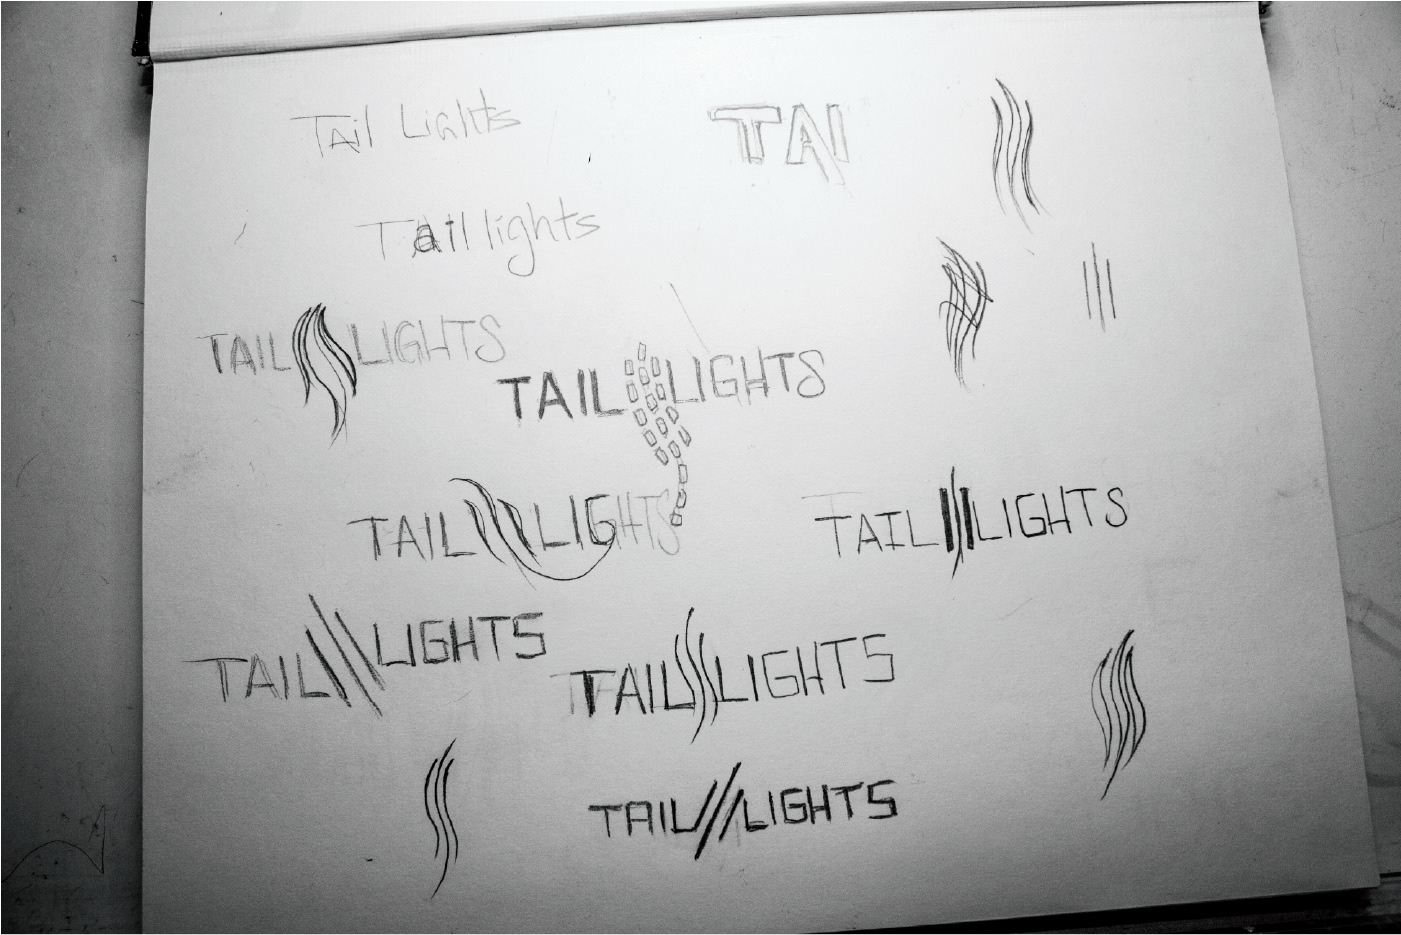 Tail Lights
TAI
Tail lights
TAIL LIGHTS
TAIL LIGHTS
TAIL LIGHTS
TAIL LIGHTS
TAIL LIGHTS
TAIL LIGHTS
TAIL LIGHTS